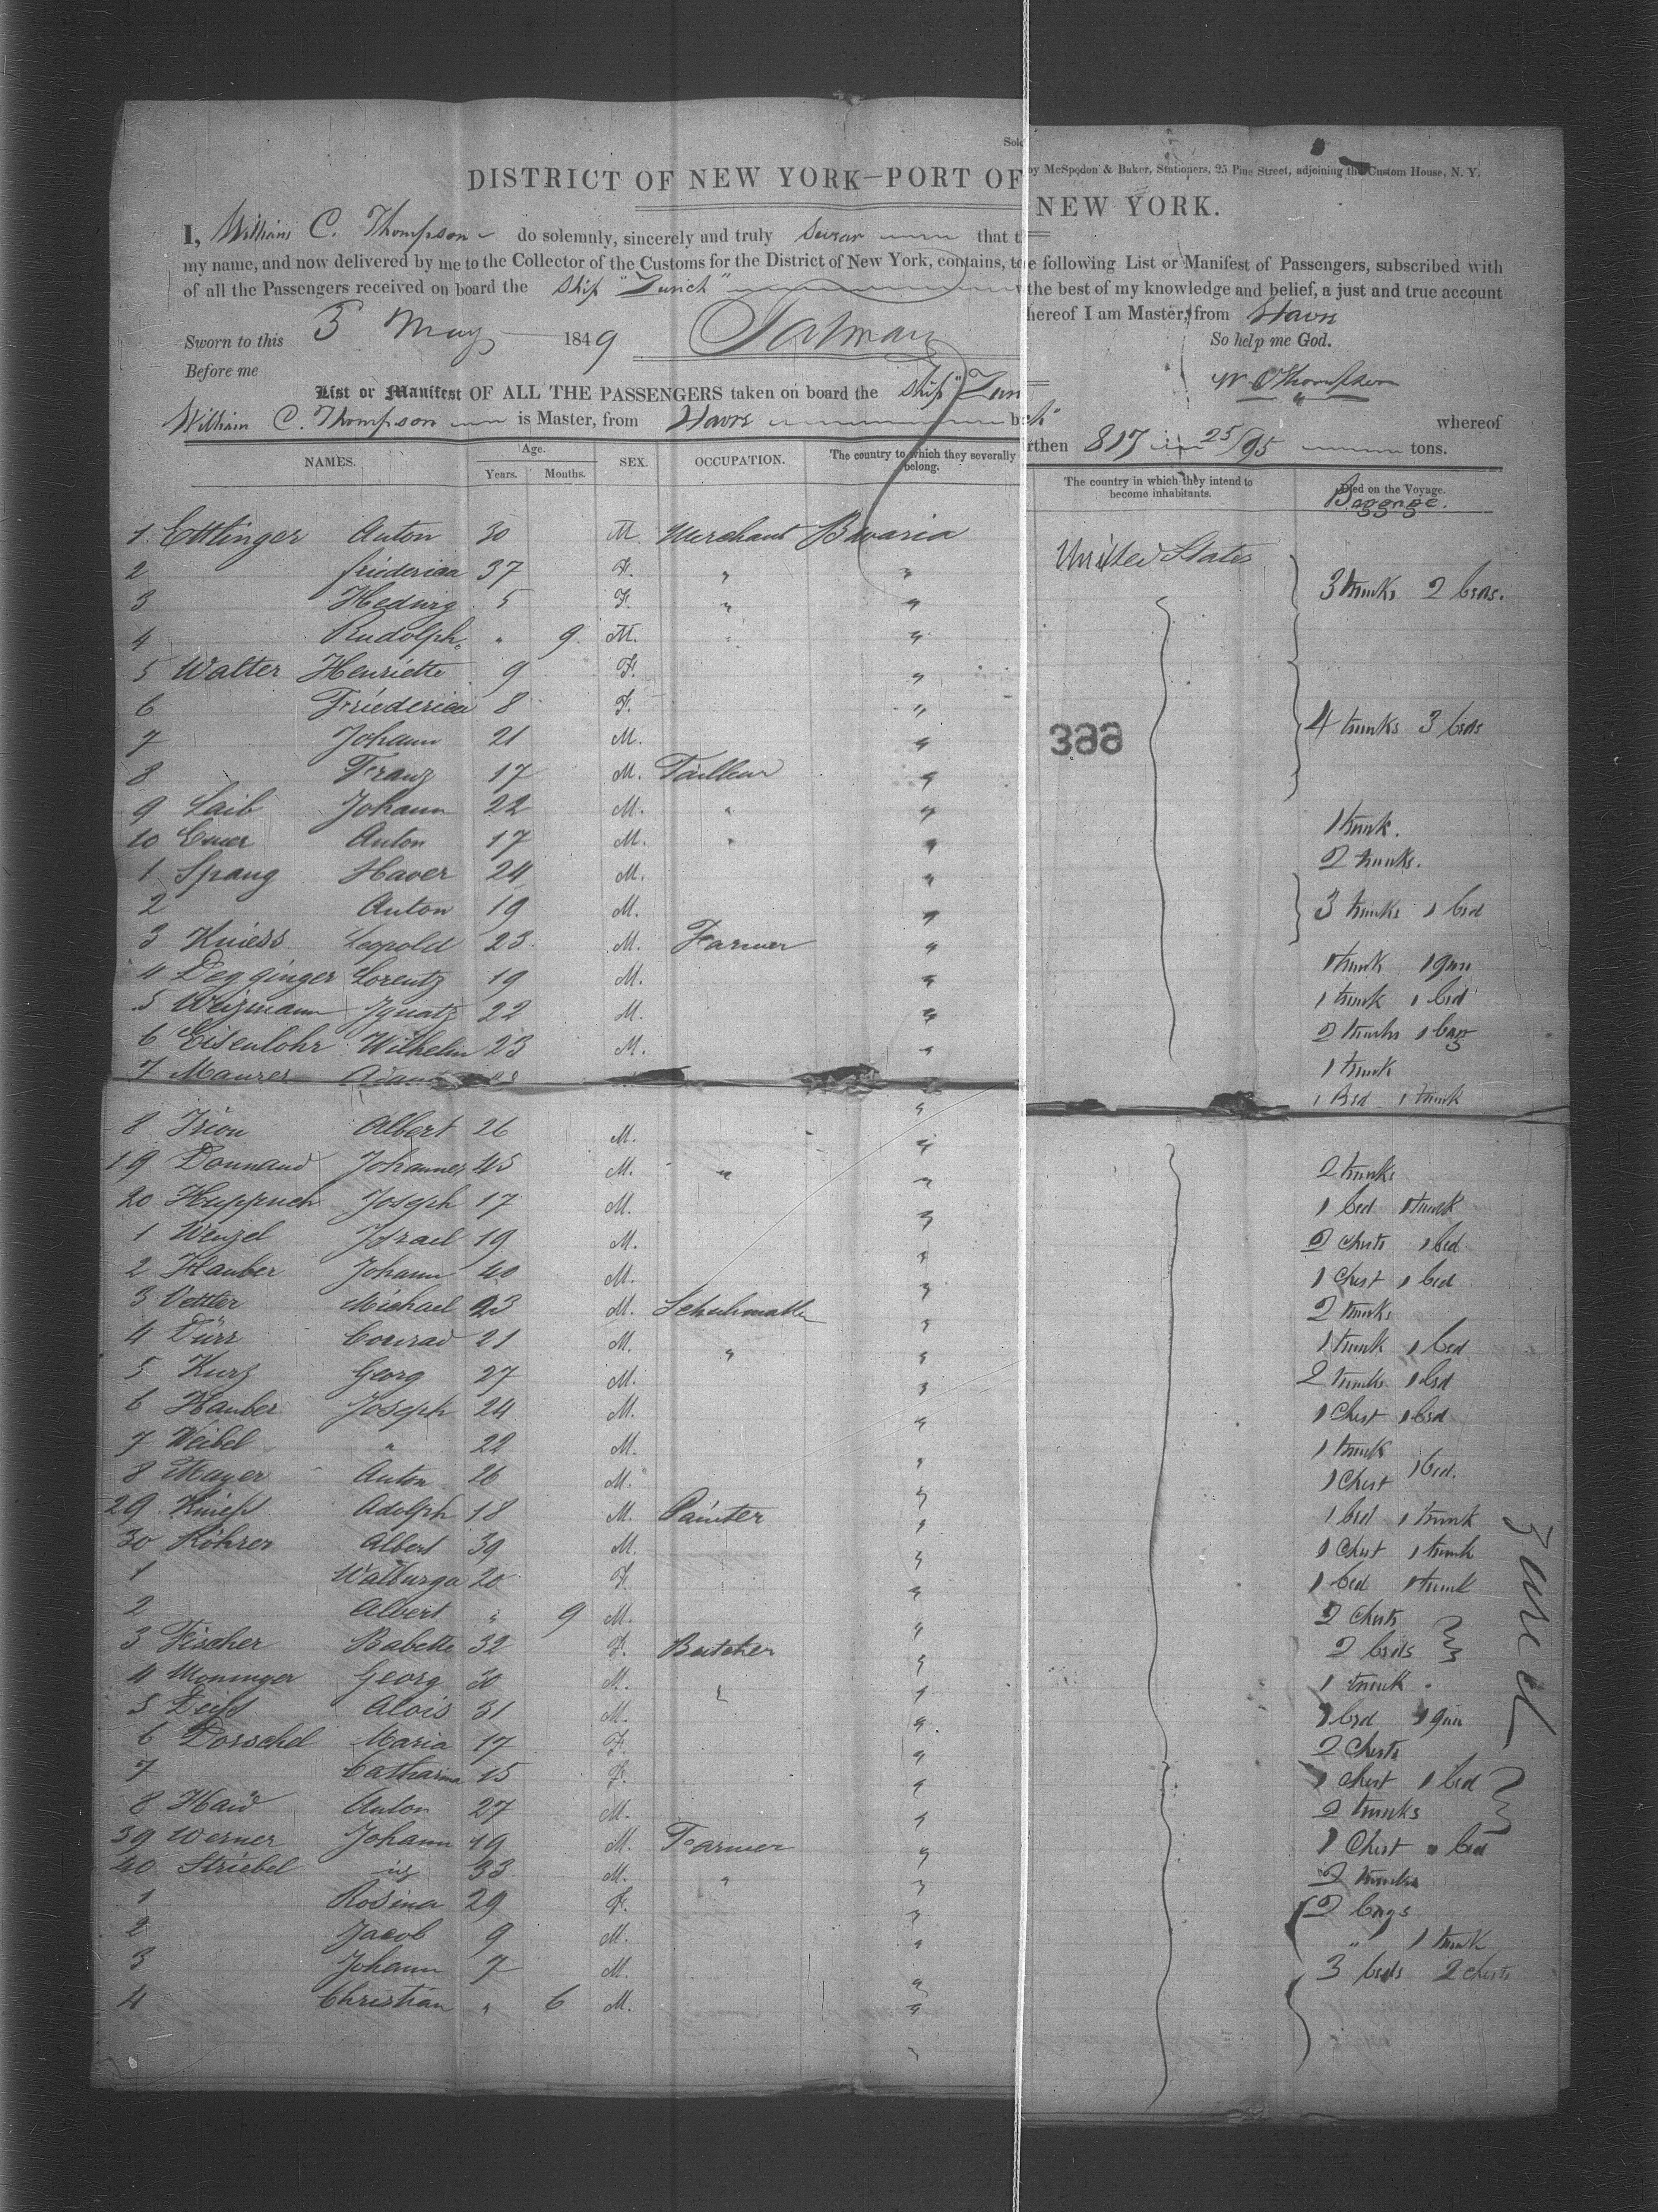 Sold by McSpedon & Baker, Stationers, 25 Pine Street, adjoining the Custom House, N. Y.
DISTRICT OF NEW YORK—PORT OF NEW YORK.
I, William C. Thompson do solemnly, sincerely and truly swear that the following List or Manifest of Passengers, subscribed with
my name, and now delivered by me to the Collector of the Customs for the District of New York, contains, to the best of my knowledge and belief, a just and true account
of all the Passengers received on board the Ship "Zurich" whereof I am Master, from Havre
Sworn to this 5 May 1849 So help me God.
Before me W. C Thompson
List or Manifest OF ALL THE PASSENGERS taken on board the Ship "Zurich" whereof
William C. Thompson is Master, from Havre burthen 817 25/95 tons.
NAMES. Age. Years. Months. SEX. OCCUPATION. The country to which they severally belong. The country in which they intend to become inhabitants. Died on the Voyage. Baggage.
1 Ettlinger Anton 30 M. Merchant Bavaria United States
2 friederica 37 F. " " 3 trunks 2 beds.
3 Hedwig 5 F. " "
4 Rudolph " 9 M. " "
5 Walter Henriette 9 F. "
6 Friederica 8 F. "
7 Johann 21 M. " 4 trunks 3 beds
8 Franz 17 M. Tailleur "
9 Laib Johann 22 M. " " 1 trunk.
10 Anton 17 M. " " 2 trunks.
1 Spang Xaver 24 M. "
2 Anton 19 M. " 3 trunks 1 bed
3 Kniess Leopold 23 M. Farmer "
4 Degginger Lorentz 19 M. " 1 trunk 1 gun
5 Weizmann Ignatz 22 M. " 1 trunk 1 bed
6 Eisenlohr Wilhelm 23 M. " 2 trunks 1 bag
7 Maurer Adam 1 trunk
" 1 Bed 1 trunk
8 Irion Albert 26 M. "
19 Donnaud Johannes 45 M. " " 2 trunks
20 Joseph 17 M. " 1 bed 1 trunk
1 Wenzel Israel 19 M. " 2 chests 1 bed
2 Hauber Johann 40 M. " 1 Chest 1 bed
3 Vettler Michael 23 M. " 2 trunks
4 Dürr Conrad 21 M. " " 1 trunk 1 bed
5 Kurz Georg 27 M. " 2 trunks 1 bed
6 Hauber Joseph 24 M. " 1 Chest 1 bed
7 Weibel " 22 M. " 1 trunk
8 Mayer Anton 26 M. " 1 Chest 1 bed.
29 Knieß Adolph 18 M. Painter " 1 bed 1 trunk
30 Röhrer Albert 39 M. " 1 Chest 1 trunk
1 Walburga 20 F. " 1 bed 1 trunk
2 Albert " 9 M. " 2 Chests
3 Fischer Babette 32 F. Butcher " 2 beds
4 Moninger Georg 30 M. " " 1 trunk
5 Alois 31 M. " 1 bed 1 gun
6 Dorschel Maria 17 F. " 2 Chests
7 Catharina 15 F. " 1 chest 1 bed
8 Haid Anton 27 M. " 2 trunks
39 Werner Johann 19 M. Farmer " 1 Chest 1 bed
40 Striebel 33 M. " " 2 trunks
1 Rosina 29 F. " 2 bags
2 Jacob 9 M. " " 1 trunk
3 Johann 7 M. " 3 beds 2 chests
4 Christian " 6 M. "
366